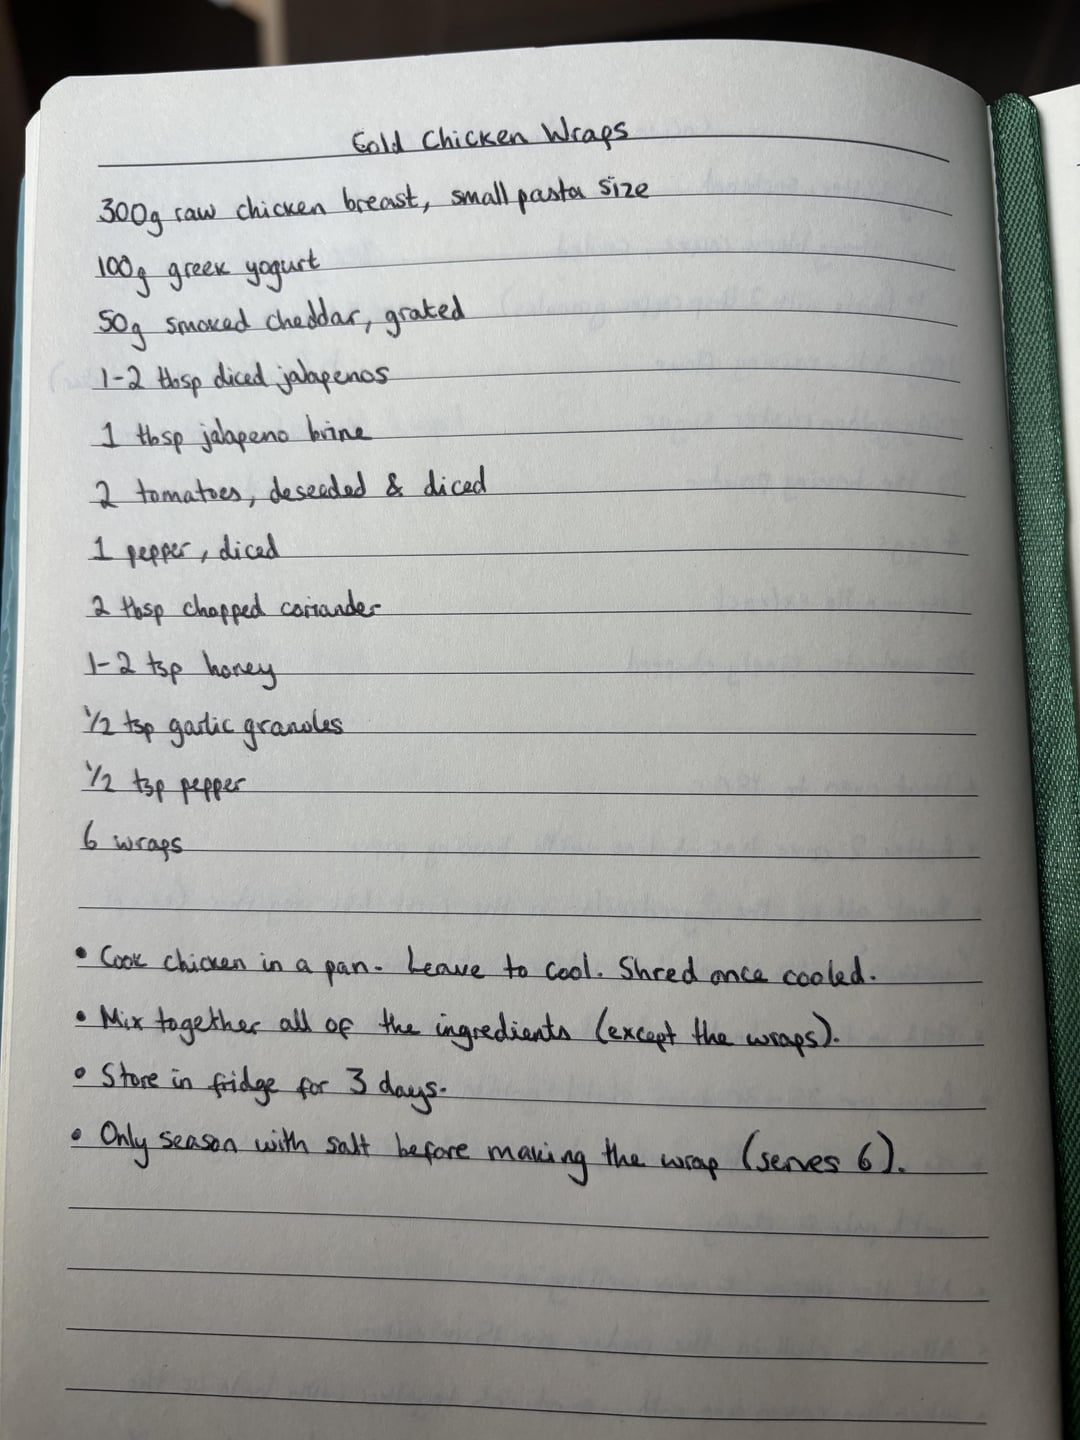 Cold Chicken Wraps
300g raw chicken breast, small pasta size
100g greek yogurt
50g smoked cheddar, grated
1-2 tbsp diced jalapenos
1 tbsp jalapeno brine
2 tomatoes, deseeded & diced
1 pepper, diced
2 tbsp chopped coriander
1-2 tsp honey
1/2 tsp garlic granoles
1/2 tsp pepper
6 wraps
• Cook chicken in a pan. Leave to cool. Shred once cooled.
• Mix together all of the ingredients (except the wraps).
• Store in fridge for 3 days.
• Only season with salt before making the wrap (serves 6).